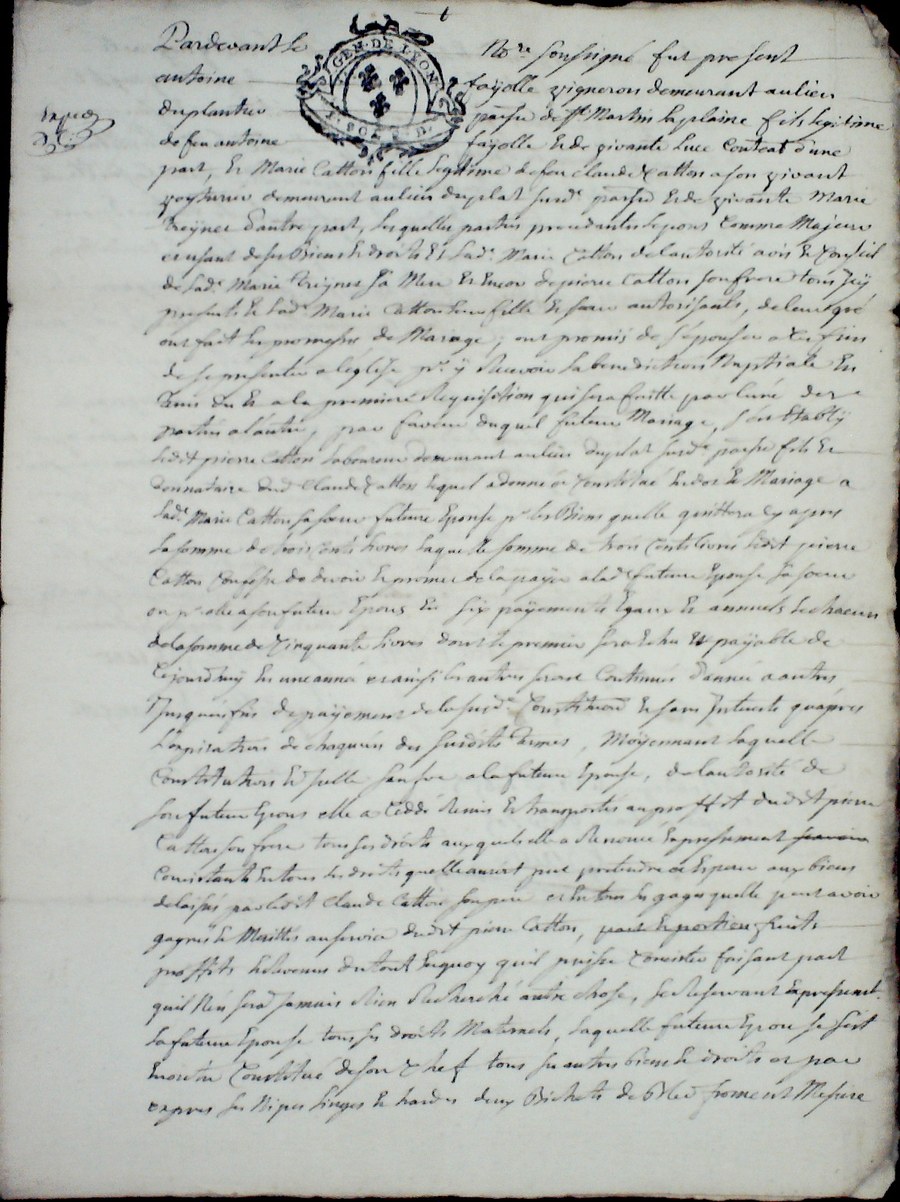 Pardevant le No.re soussigné fut present
antoine fayolle vigneron demeurant au lieu
du plantier parsse de st Martin la plaine fils legitime
de feu antoine fayolle et de vivante Luce Contat d'une
part, Et Marie Catton fille legitime de feu claude Catton a son vivant
voyturier demeurant au lieu du plat susd. parsse et de vivante Marie
d'autre part, lesquelles parties procedants sçavoir comme Majeure
et usant de ses Biens et droits Et lad.e Marie Catton de l'autorité avis Et Conseil
de lad.e Marie sa Mere Et Encor de pierre Catton son frere tous icy
presents Et lad.e Marie Catton leur fille Et soeur autorisants, de leur gré
ont fait les promesses de Mariage, ont promis de s'épouser a ces fins
de se presenter a l'église pr y Recevoir la benediction Nuptiale En
a la premiere Requisition qui sera faitte par l'une des
parties a l'autre, par faveur duquel futur Mariage, s'est Etably
ledit pierre Catton laboureur demeurant au lieu du plat susd.e parsse fils Et
Donnataire dud Claude Catton lequel a donné et Constitué En dot Et Mariage a
lad.e Marie Catton sa soeur future Epouse pr les Biens quelle quittera cy apres
la somme de trois Cents livres laquelle somme de trois Cents livres ledit pierre
Catton Confesse de devoir Et promet de la payer a lad future Epouse sa soeur
ou pr elle a son futur Epoux En six payements Egaux Et annuels de chacun
de la somme de Cinquante livres dont le premier sera Echu Et payable de
Cejourd'huy En une année et ainsi les autres seront Continués d'année a autres
Jusques fins de payement de la susd. Constitution Et sans Interests qu'apres
l'expiration de chaquun des susdits termes, Moyennant laquelle
Constitution Et Icelle sauve a la future Epouse, de l'autorité de
son futur Epoux elle a Ceddé Remis Et transportés au proffit dudit pierre
Catton son frere tous ses droits auxquels elle a Renoncé Expressement
Consistants En tous les droits quelle auroit peut pretendre et Esperer aux biens
delaissés par ledit Claude Catton son pere et En tous les gages quelle peut avoir
gagnés Et Merittés au service dudit pierre Catton, part Et portion fruits
proffits et Revenus du tout En quoy qu'il puisse Consister faisant pact
qu'il N'en sera Jamais Rien Recherché autre chose, se Reservant Expressement
la future Epouse tous ses droits Maternels, laquelle future Epouse se fait
Constitue de son Chef tous ses autres biens Et droits et par
expres ses Nipes linges Et hardes deux Bichets de Bled froment Mesure
GEN. DE LYON